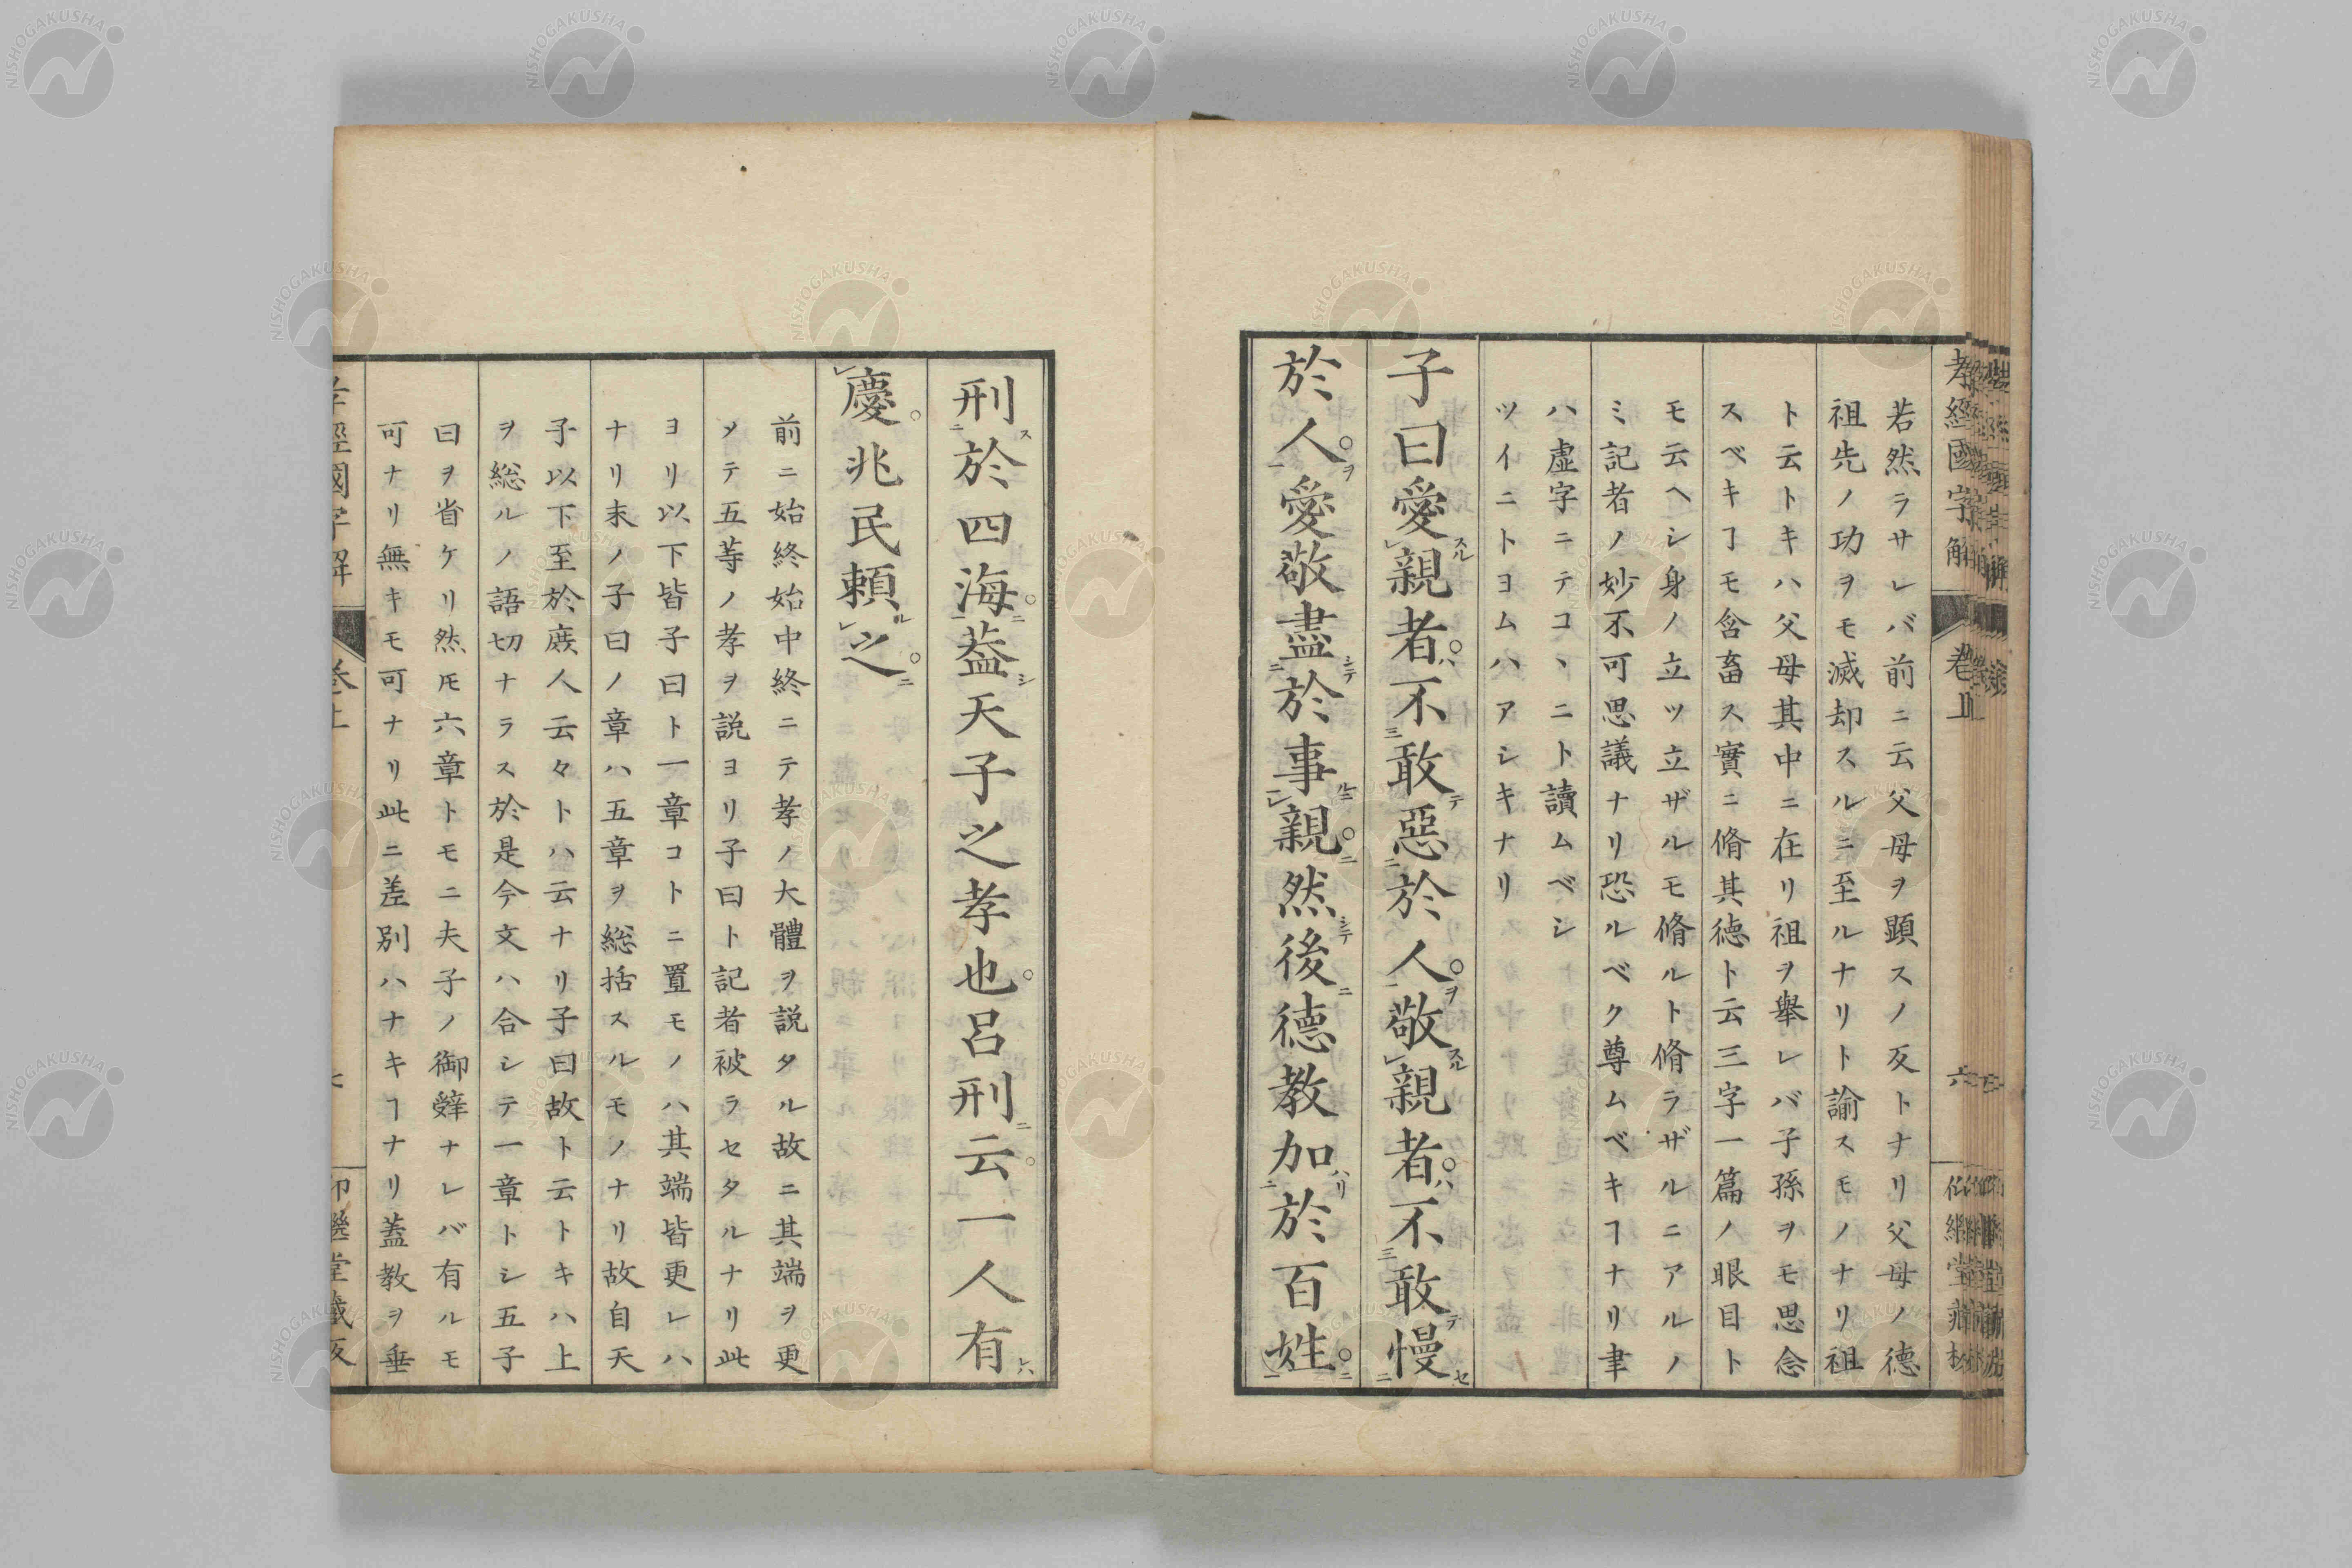 若然ラサレバ前ニ云父母ヲ顕スノ反トナリ父母ノ徳
祖先ノ功ヲモ滅却スルニ至ルナリト諭スモノナリ祖
ト云トキハ父母其中ニ在リ祖ヲ舉レバ子孫ヲモ思念
スベキヿモ含畜ス實ニ脩其徳ト云三字一篇ノ眼目ト
モ云ヘシ身ノ立ツ立ザルモ脩ルト脩ラザルニアルノ
ミ記者ノ妙不可思議ナリ恐ルベク尊ムベキヿナリ聿
ハ虚字ニテコヽニト讀ムベシ
ツイニトヨムハアシキナリ
子曰愛親者不敢惡於人敬親者不敢慢
於人愛敬盡於事親然後德教加於百姓
刑於四海蓋天子之孝也呂刑云一人有
慶兆民賴之
前ニ始終始中終ニテ孝ノ大體ヲ説タル故ニ其端ヲ更
メテ五等ノ孝ヲ説ヨリ子曰ト記者被ラセタルナリ此
ヨリ以下皆子曰ト一章コトニ置モノハ其端皆更レハ
ナリ末ノ子曰ノ章ハ五章ヲ総括スルモノナリ故自天
子以下至於庶人云々トハ云ナリ子曰故ト云トキハ上
ヲ総ルノ語切ナラス於是今文ハ合シテ一章トシ五子
曰ヲ省ケリ然𪜈六章トモニ夫子ノ御辤ナレバ有ルモ
可ナリ無キモ可ナリ此ニ差別ハナキヿナリ蓋教ヲ垂
孝經國字解
卷上